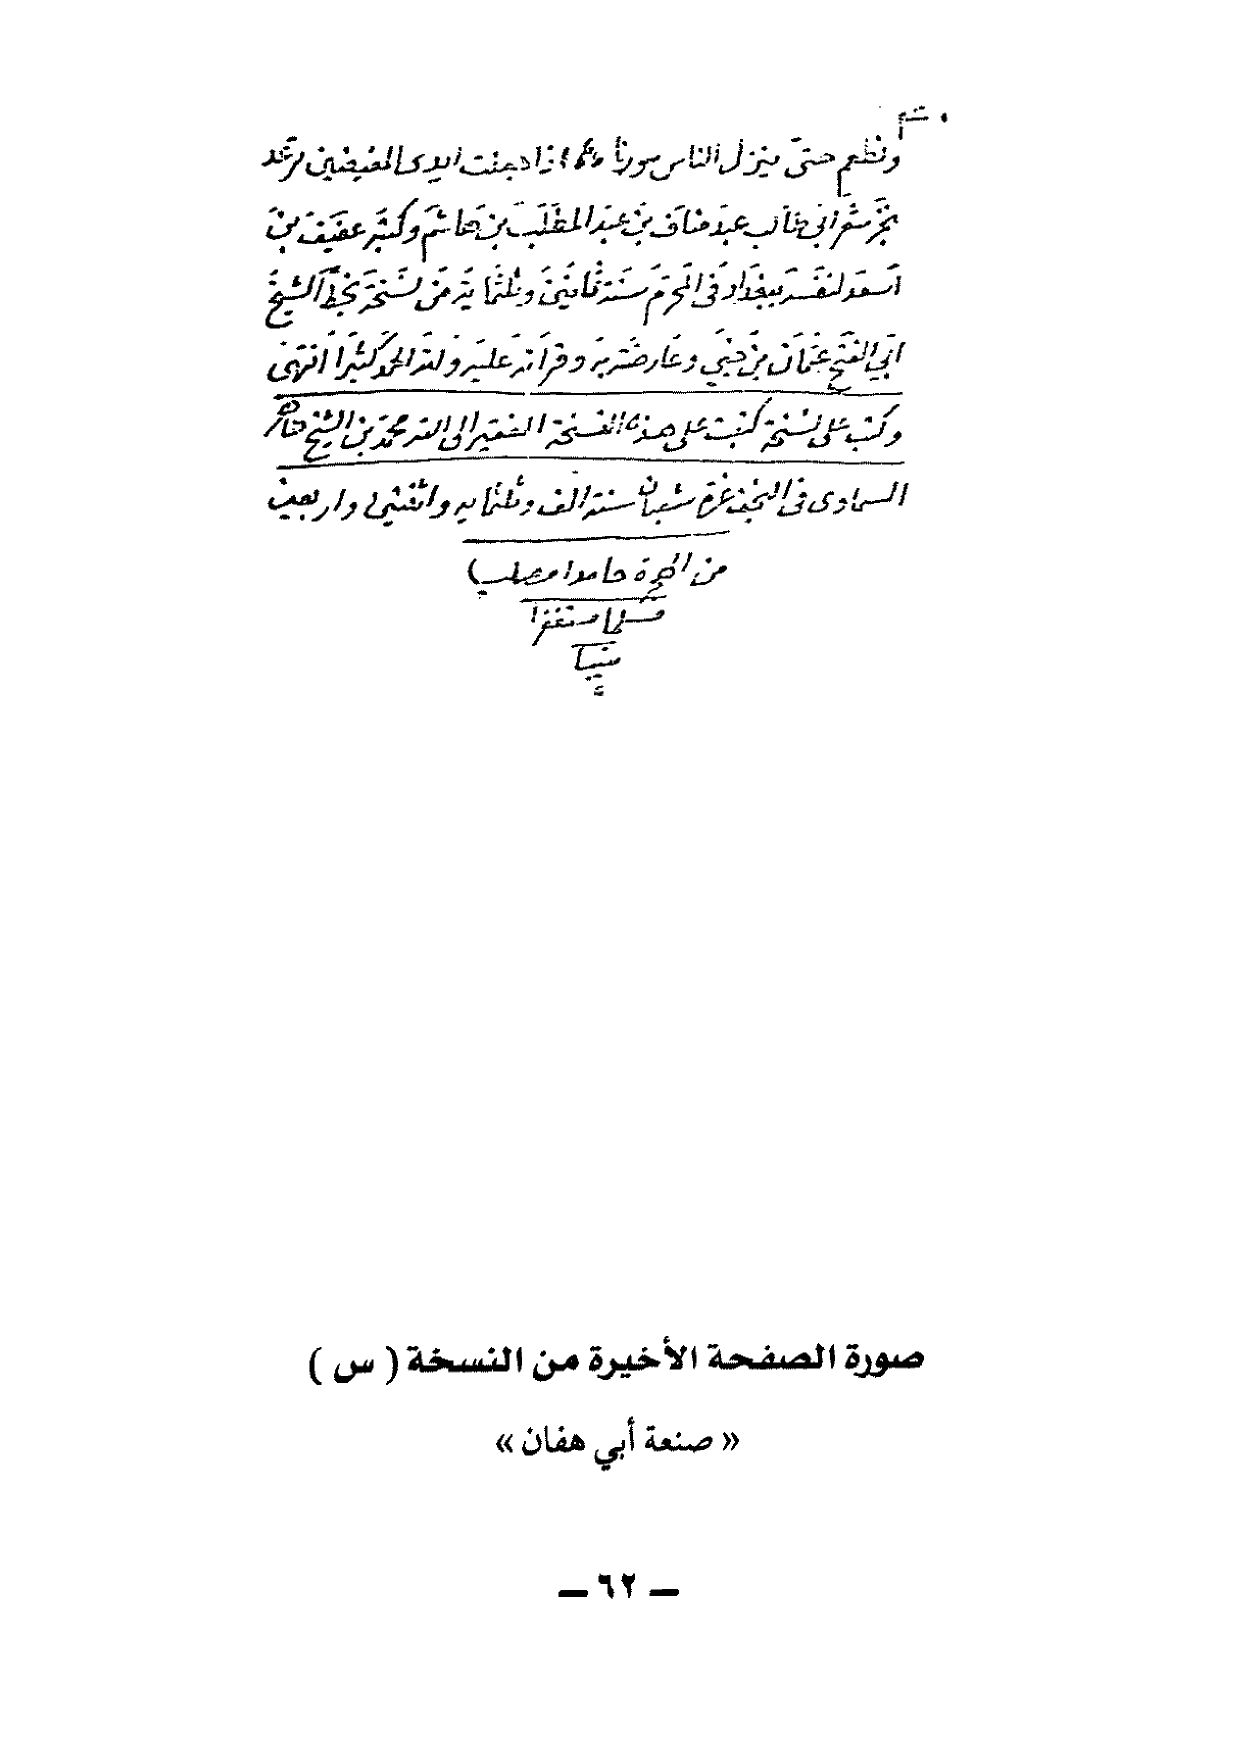 ونطعم حتى ينزل الناس سورنا اذا جعلت ايدى المفيضين ترعد
نجز شعر ابي طالب عبد مناف بن عبد المطلب بن هاشم وكتبه عفيف بن
اسعد لنفسه ببغداد في المحرم سنة ثمانين وثلثمائة من نسخة بخط الشيخ
ابي الفتح عثمان بن جني وعارضته به وقرأته عليه ولله الحمد كثيرا انتهى
وكتب على نسخة كتبت على هذه النسخة الفقير الى الله محمد بن الشيخ طاهر
السماوى في النجف غرة شعبان سنة الف وثلثمايه واثنتين واربعين
من الهجرة حامدا مصليا
مسلما مستغفرا
منيبا
صورة الصفحة الأخيرة من النسخة ( س )
« صنعة أبي هفان »
– ٦٢ –